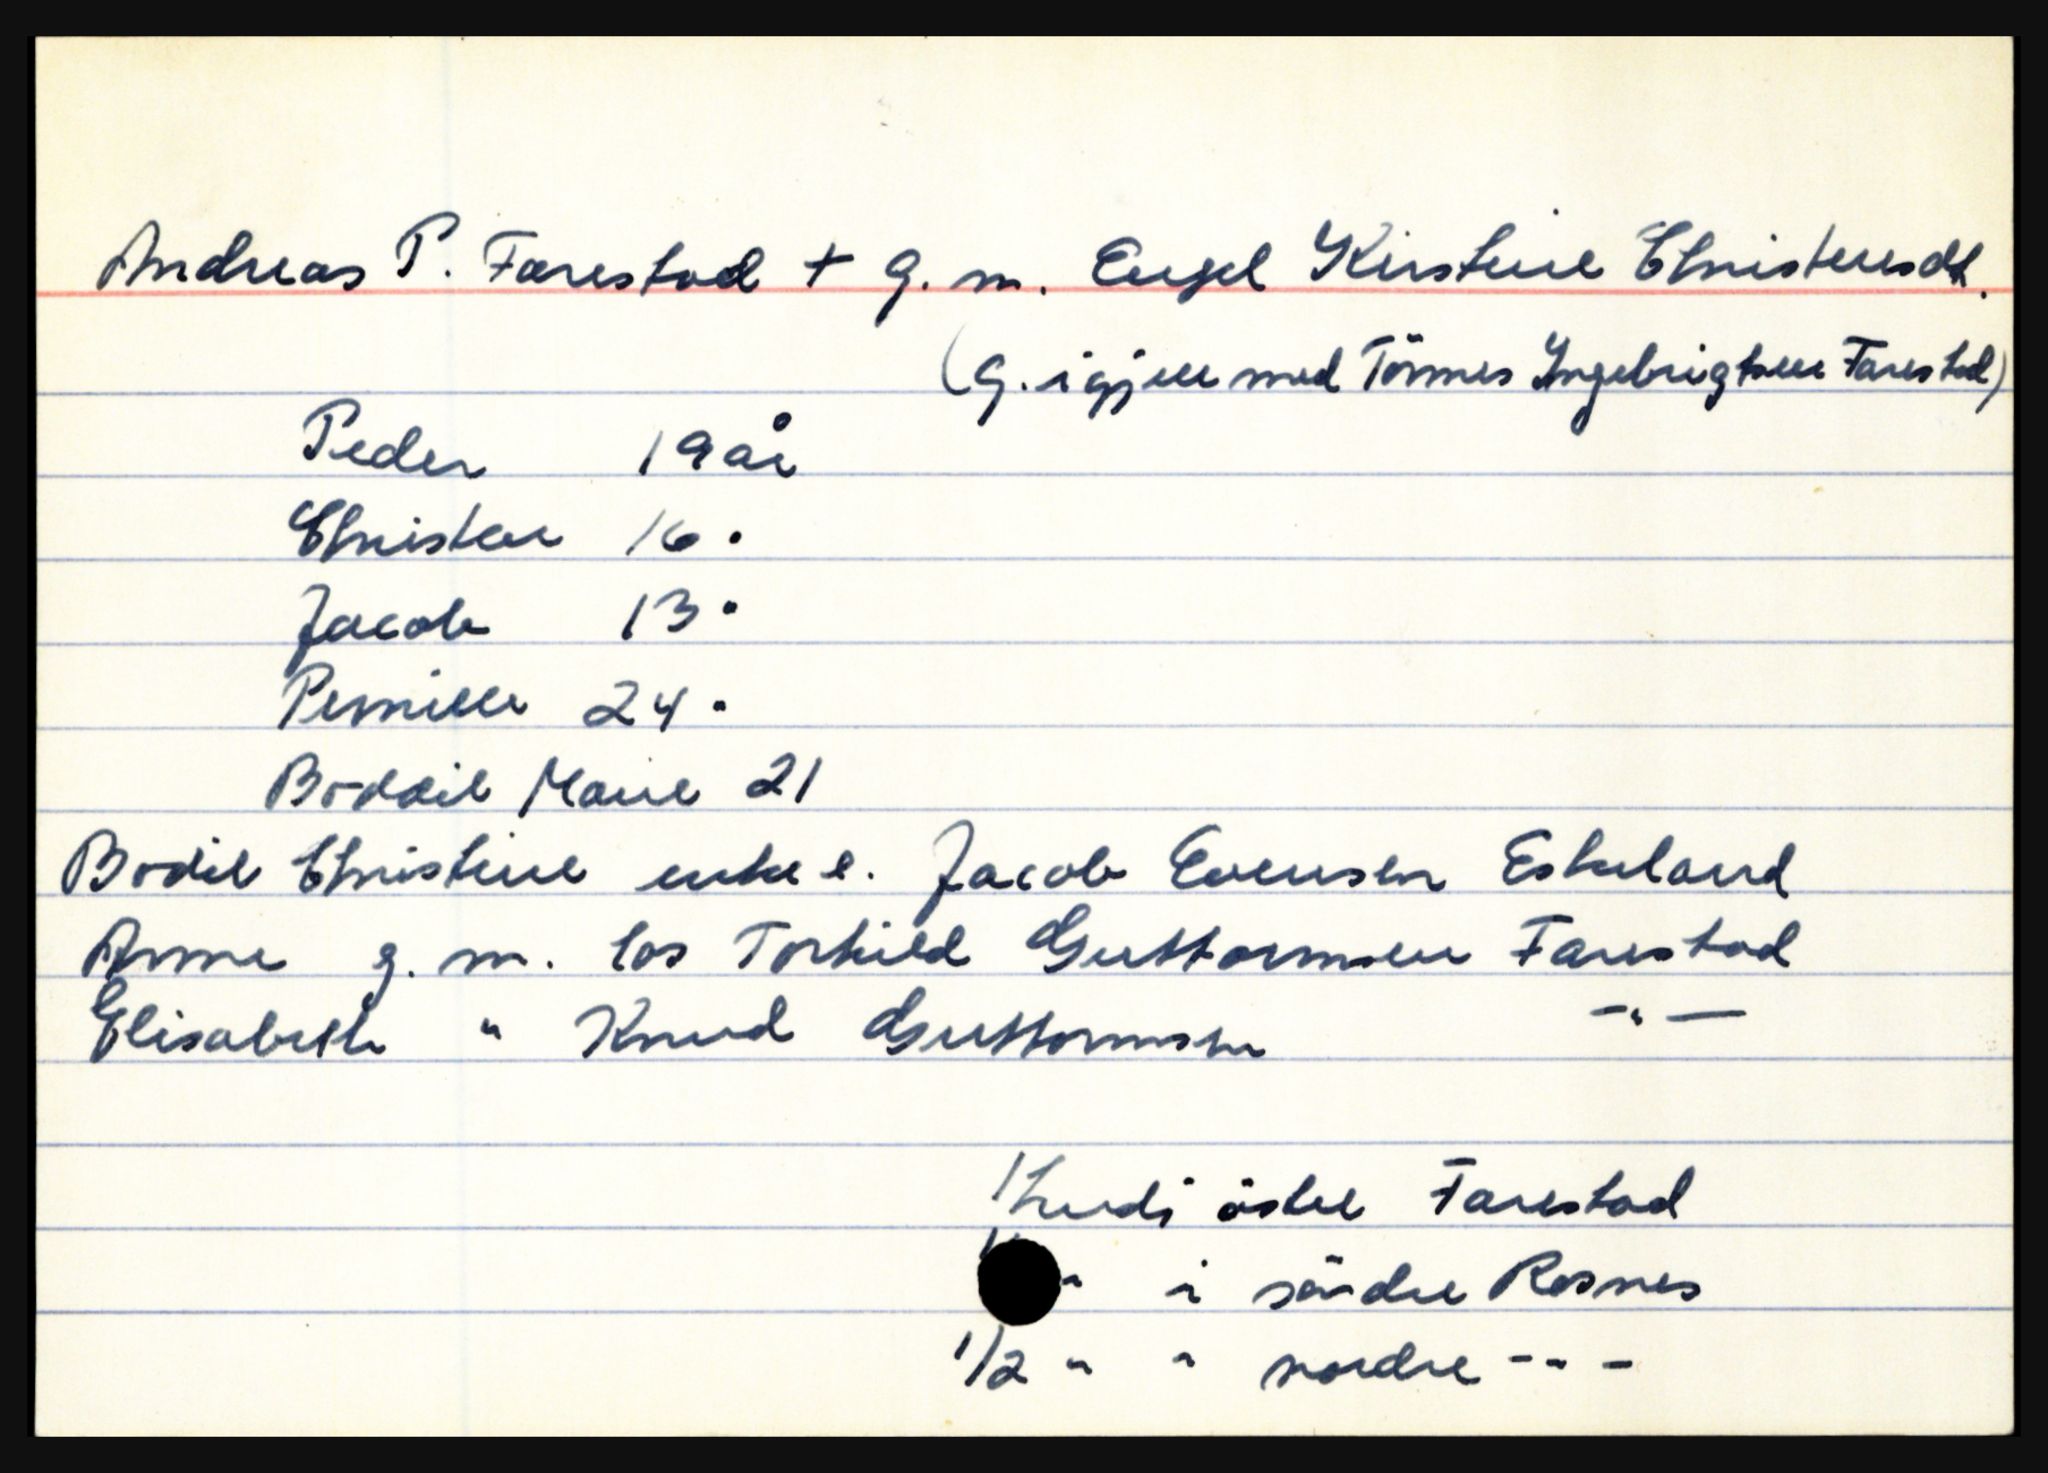 Andreas P. Farestad + g. m. Engel Kirstine Christensdt.
(g. igjen med Tönnes Ingebrigtsen Farestad)
Peder 19 år
Christen 16 "
Jacob 13 "
Pernille 24 "
Boddil Marie 21
Bodil Christine enke e. Jacob Evensen Eskeland
Anne g. m. los Torkild Guttormsen Farestad
Elisabeth " Knud Guttormsen -"-
1 hud i östre Farestad
" i söndre Rosnes
1/2 " " nordre -"-